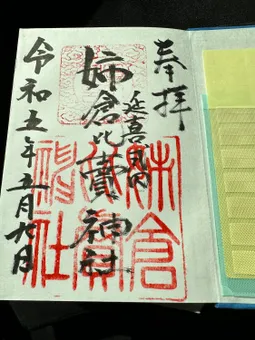 奉拝
延喜式内
姉倉比賣神社
令和五年五月六日
姉倉比賣神社